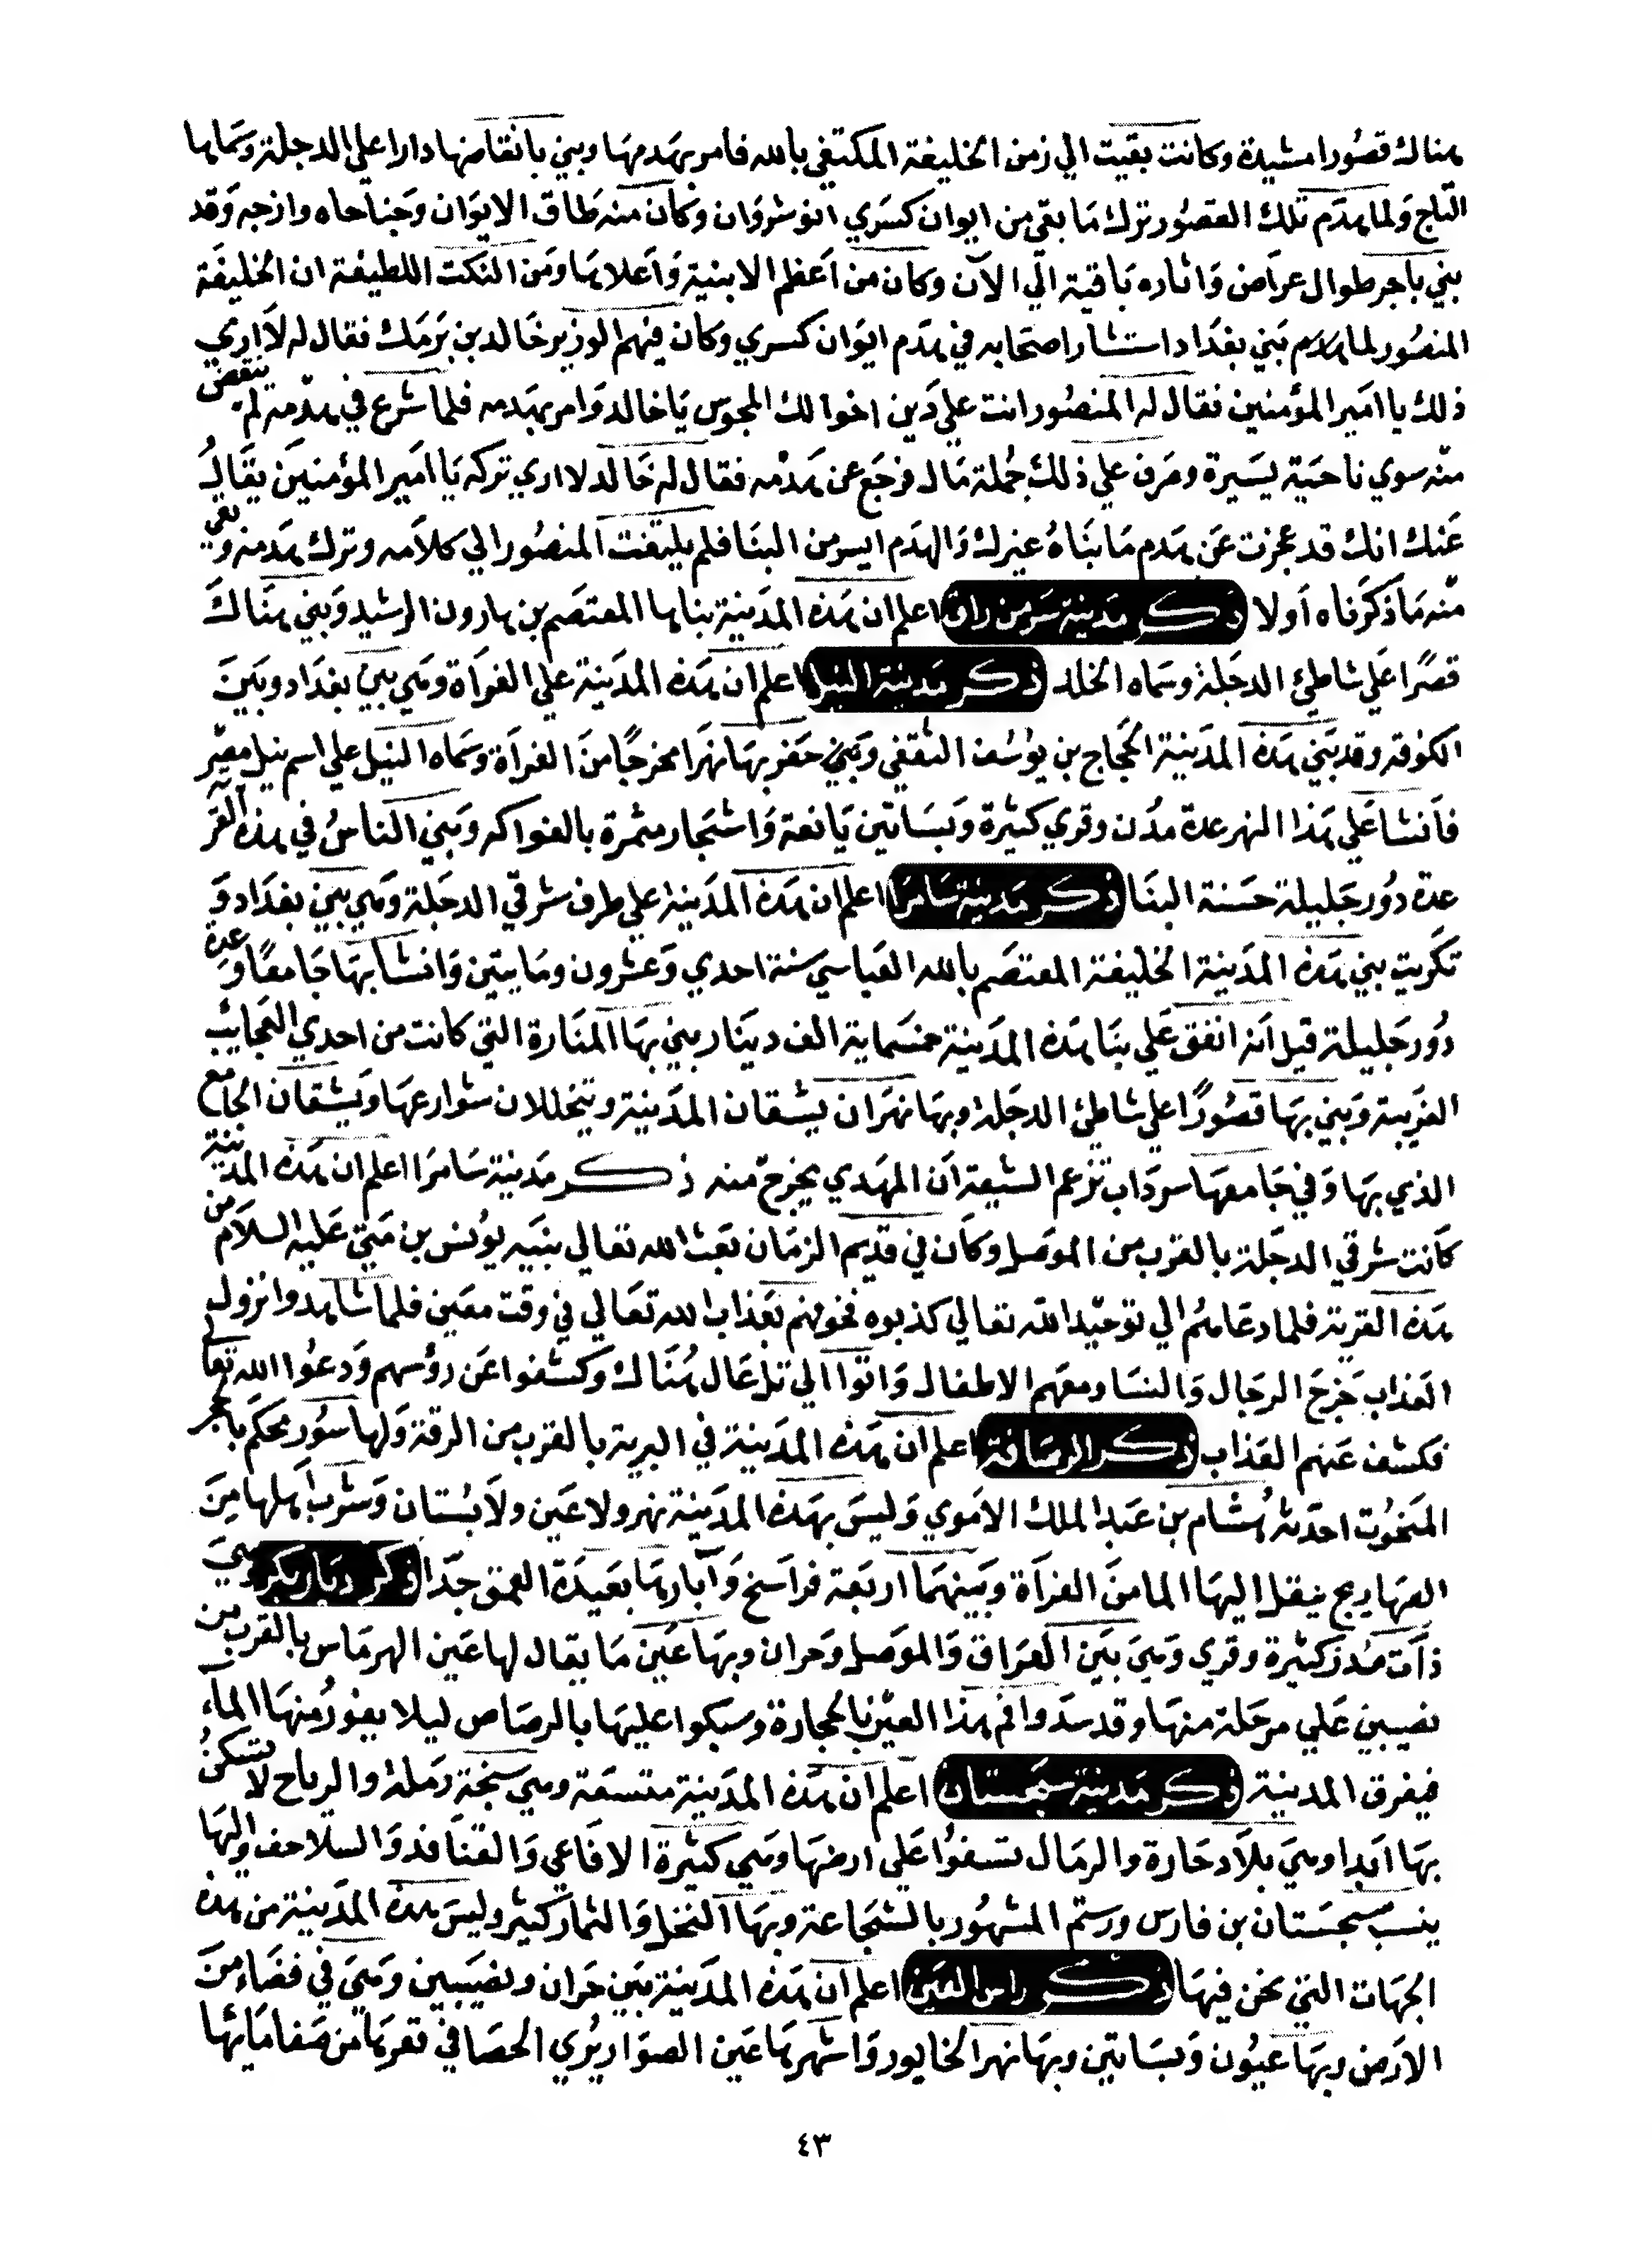 هناك قصورا مشيدة وكانت بقيت الي زمن الخليفة المكتفي بالله فامر بهدمها وبني بانقاضها دارا علي الدجلة وسماها
التاج ولما هدم تلك القصور ترك ما بقي من ايوان كسري انوشروان وكان منه طاق الايوان وجناحاه وازجه وقد
بني باجر طوال عراض واثاره باقية الي الآن وكان من اعظم الابنية واعلاها ومن النكت اللطيفة ان الخليفة
المنصور لما هدم بني بغداد استشار اصحابه في هدم ايوان كسري وكان فيهم الوزير خالد بن برمك فقال له لا اري
ذلك يا امير المؤمنين فقال له المنصور انت علي دين اخوالك المجوس يا خالد وامر بهدمه فلما شرع في هدمه لم ينقض
منه سوي ناحية يسيرة وصرف علي ذلك جملة مال فرجع عن هدمه فقال له خالد لا اري تركه يا امير المؤمنين يقال
عنك انك قد عجزت عن هدم ما بناه غيرك والهدم ايسر من البنا فلم يلتفت المنصور الي كلامه وترك هدمه وبقي
منه ما ذكرناه اولا ذكر مدينة سر من راي اعلم ان هذه المدينة بناها المعتصم بن هارون الرشيد وبني هناك
قصرًا علي شاطئ الدجلة وسماه الخلد ذكر مدينة النيل اعلم ان هذه المدينة علي الفراة وهي بين بغداد وبين
الكوفة وقد بني هذه المدينة الحجاج بن يوسف الثقفي وبني حفر بها نهرا مخرجًا من الفراة وسماه النيل علي اسم نيل مصر
فانشا علي هذا النهر عدة مدن وقري كثيرة وبساتين يانعة واشجار مثمرة بالفواكه وبني الناس في هذه القرية
عدة دور جليلة حسنة البنا ذكر مدينة سامرا اعلم ان هذه المدينة علي طرف شرقي الدجلة وهي بين بغداد و
تكريت بني هذه المدينة الخليفة المعتصم بالله العباسي سنة احدي وعشرون ومايتين وانشا بها جامعًا وعدة
دور جليلة قيل انه انفق علي بنا هذه المدينة خمسماية الف دينار بني بها المنارة التي كانت من احدي العجايب
الغريبة وبني بها قصورًا علي شاطئ الدجلة وبها نهران يشقان المدينة ويتخللان شوارعها ويشقان الجامع
الذي بها وفي جامعها سرداب تزعم الشيعة ان المهدي يخرج منه ذكر مدينة سامرا اعلم ان هذه المدينة
كانت شرقي الدجلة بالقرب من الموصل وكان في قديم الزمان بعث الله تعالي بنبيه يونس بن متي عليه السلام من
هذه القرية فلما دعاهم الي توحيد الله تعالي كذبوه فخوفهم بعذاب الله تعالي في وقت معين فلما شاهدوا نزول
العذاب خرج الرجال والنسا ومعهم الاطفال واتوا الي تل عال هناك وكشفوا عن رؤسهم ودعوا الله تعالي
فكشف عنهم العذاب ذكر الرصافة اعلم ان هذه المدينة في البرية بالقرب من الرقة ولها سور محكم بالحجر
المنحوت احدثه هشام بن عبد الملك الاموي وليس بهذه المدينة نهر ولا عين ولا بستان وشرب اهلها من
الصهاريج ينقل اليها الما من الفراة وبينهما اربعة فراسخ وآبارها بعيدة العمق جدا ذكر ديار بكر وهي
ذات مدن كثيرة وقري وهي بين العراق والموصل وحران وبها عين ما يقال لها عين الهرماس بالقرب من
نصيبين علي مرحلة منها وقد سدوا فم هذا العين بالحجارة وسبكوا عليها بالرصاص ليلا يفور منها الماء
فيغرق المدينة ذكر مدينة سجستان اعلم ان هذه المدينة متسعة وهي سبخة رملة والرياح لا تسكن
بها ابدا وهي بلاد حارة والرمال تسفوا علي ارضها وهي كثيرة الافاعي والقنافذ والسلاحف واليها
ينسب سجستان بن فارس ورستم المشهور بالشجاعة وبها النخل والثمار كثير وليس هذه المدينة من هذه
الجهات التي نحن فيها ذكر راس العين اعلم ان هذه المدينة بين حران ونصيبين وهي في فضاء من
الارض وبها عيون وبساتين وبها نهر الخابور واشهرها عين الصوار يري الحصا في قعرها من صفا مائها
٤٣